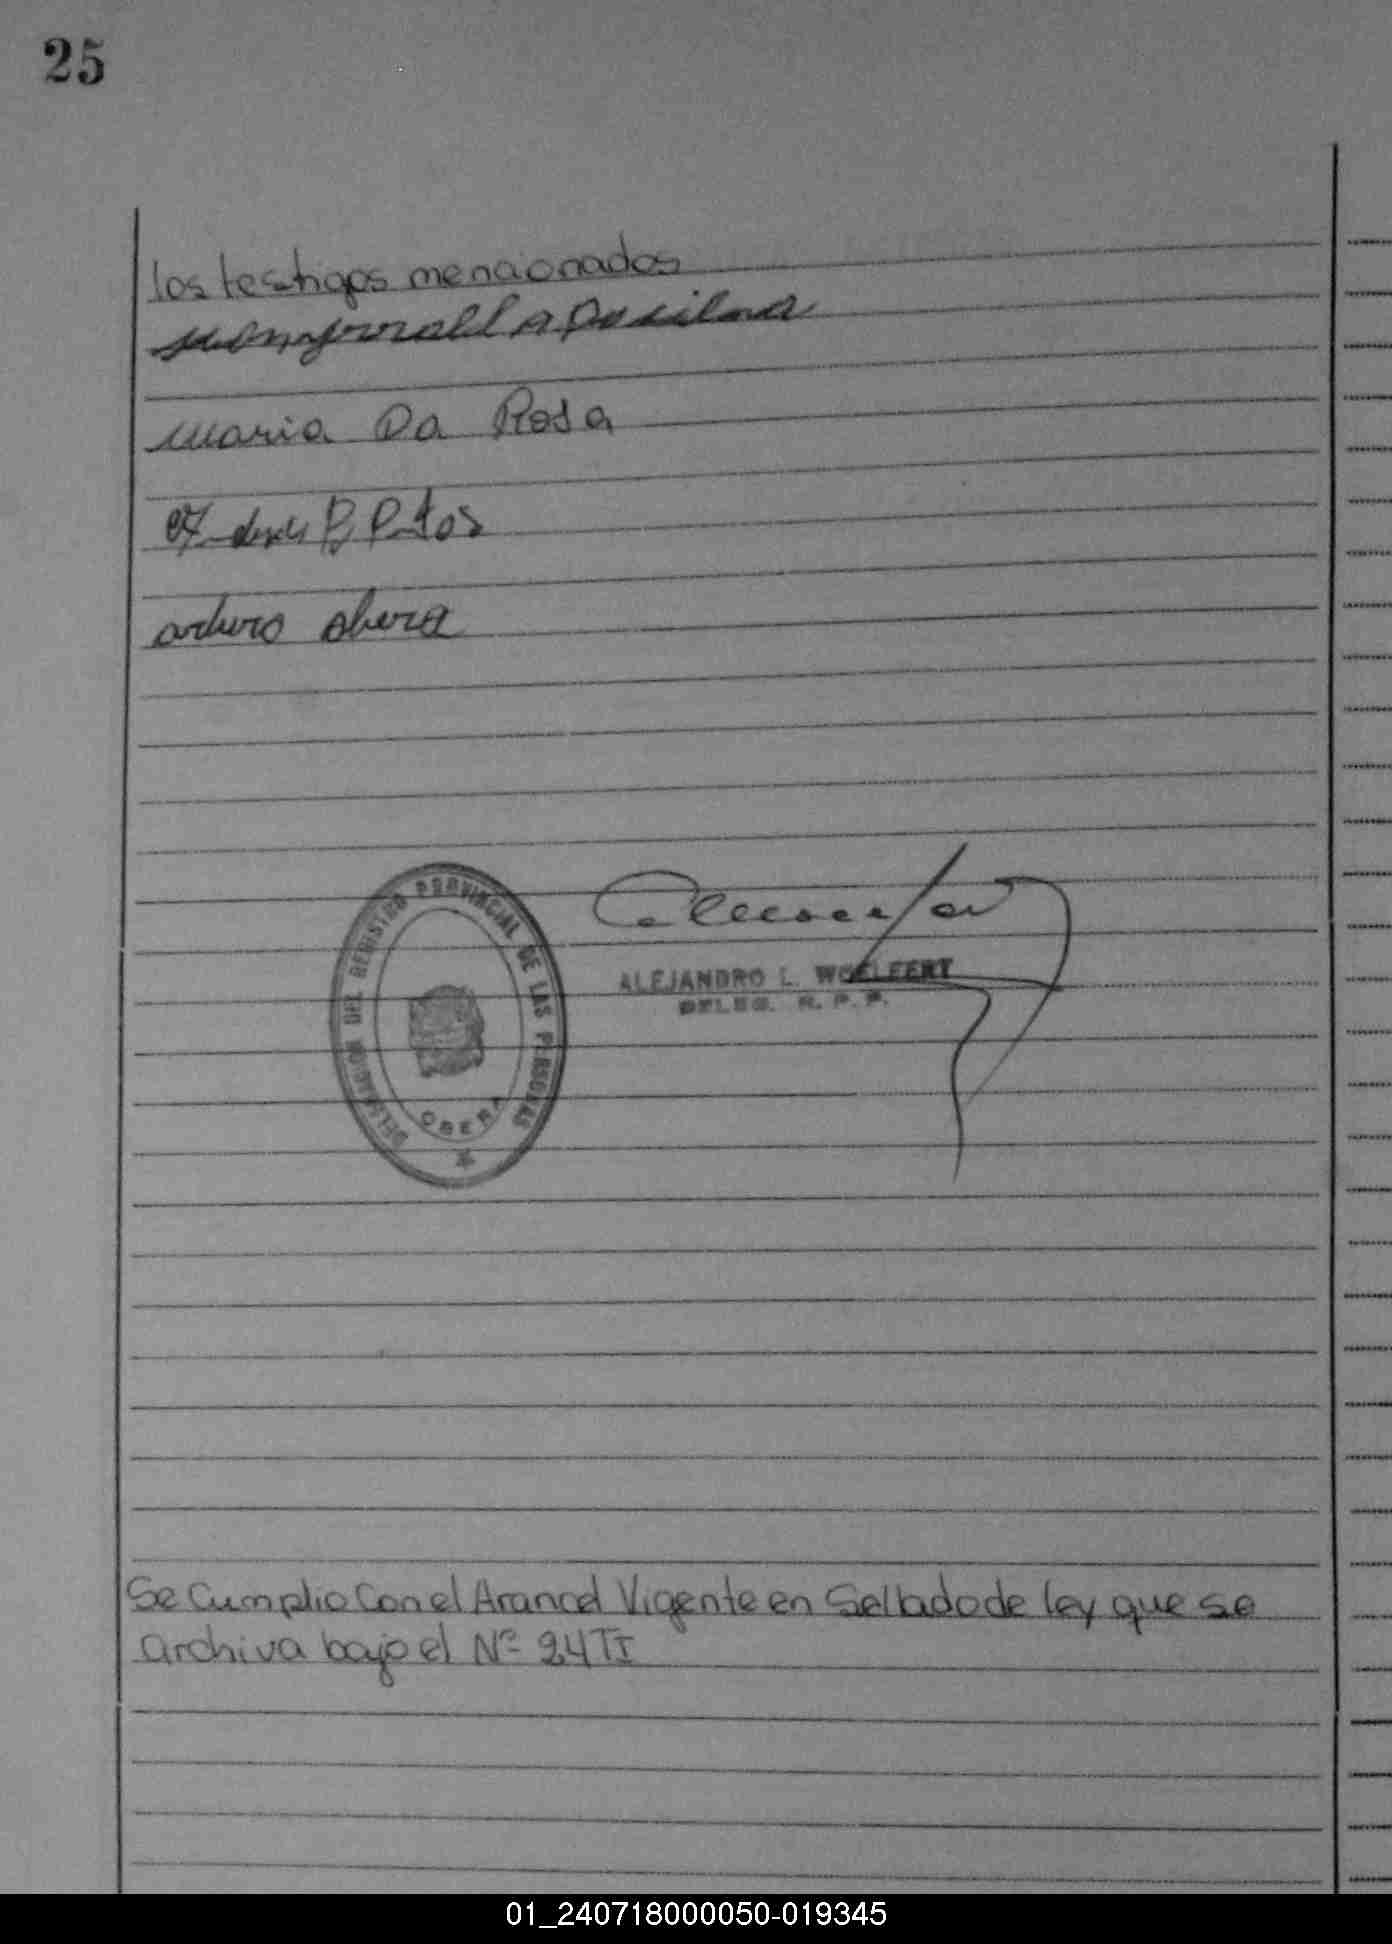 25
los testigos mencionados
Da Silva
Maria Da Rosa
arturo olvera
DELEGACION DEL REGISTRO PROVINCIAL DE LAS PERSONAS
OBERA
ALEJANDRO L. WOELFERT
DELEG. R. P. P.
Se Cumplio Con el Arancel Vigente en Sellado de ley que se
archiva bajo el Nº 24TI
01_240718000050-019345